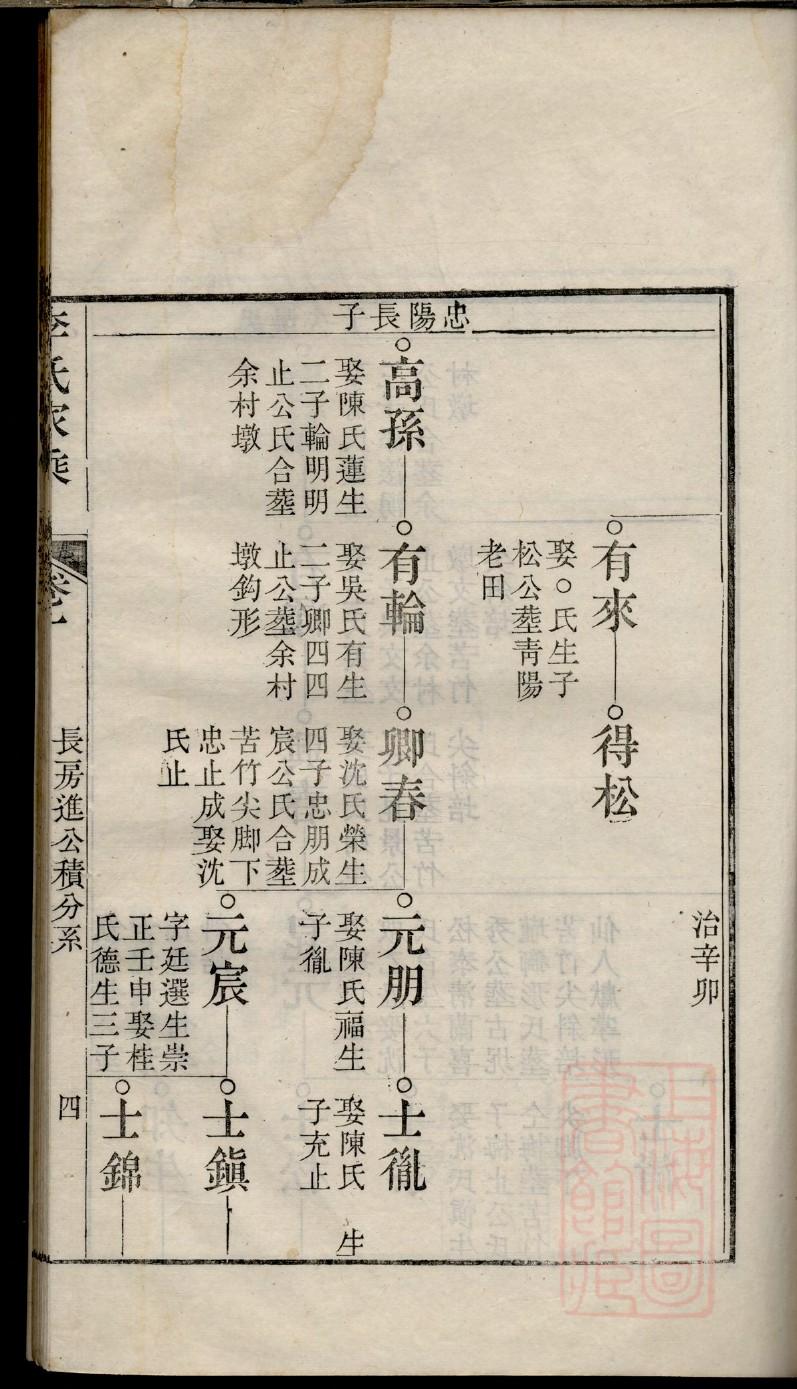 治辛卯
有來
娶○氏生子
松公塟靑陽
老田
得松
忠陽長子
高孫
娶陳氏蓮生
二子輪明明
止公氏合塟
余村墩
有輪
娶吳氏有生
二子卿四四
止公塟余村
墩鈎形
卿春
娶沈氏榮生
四子忠朋成
宸公氏合塟
苦竹尖脚下
忠止成娶沈
氏止
元朋
娶陳氏福生
子胤
士胤
娶陳氏 生
子充止
元宸
字廷選生崇
正壬申娶桂
氏德生三子
士鎮
士錦
李氏家乘
卷一
長房進公積分系
四